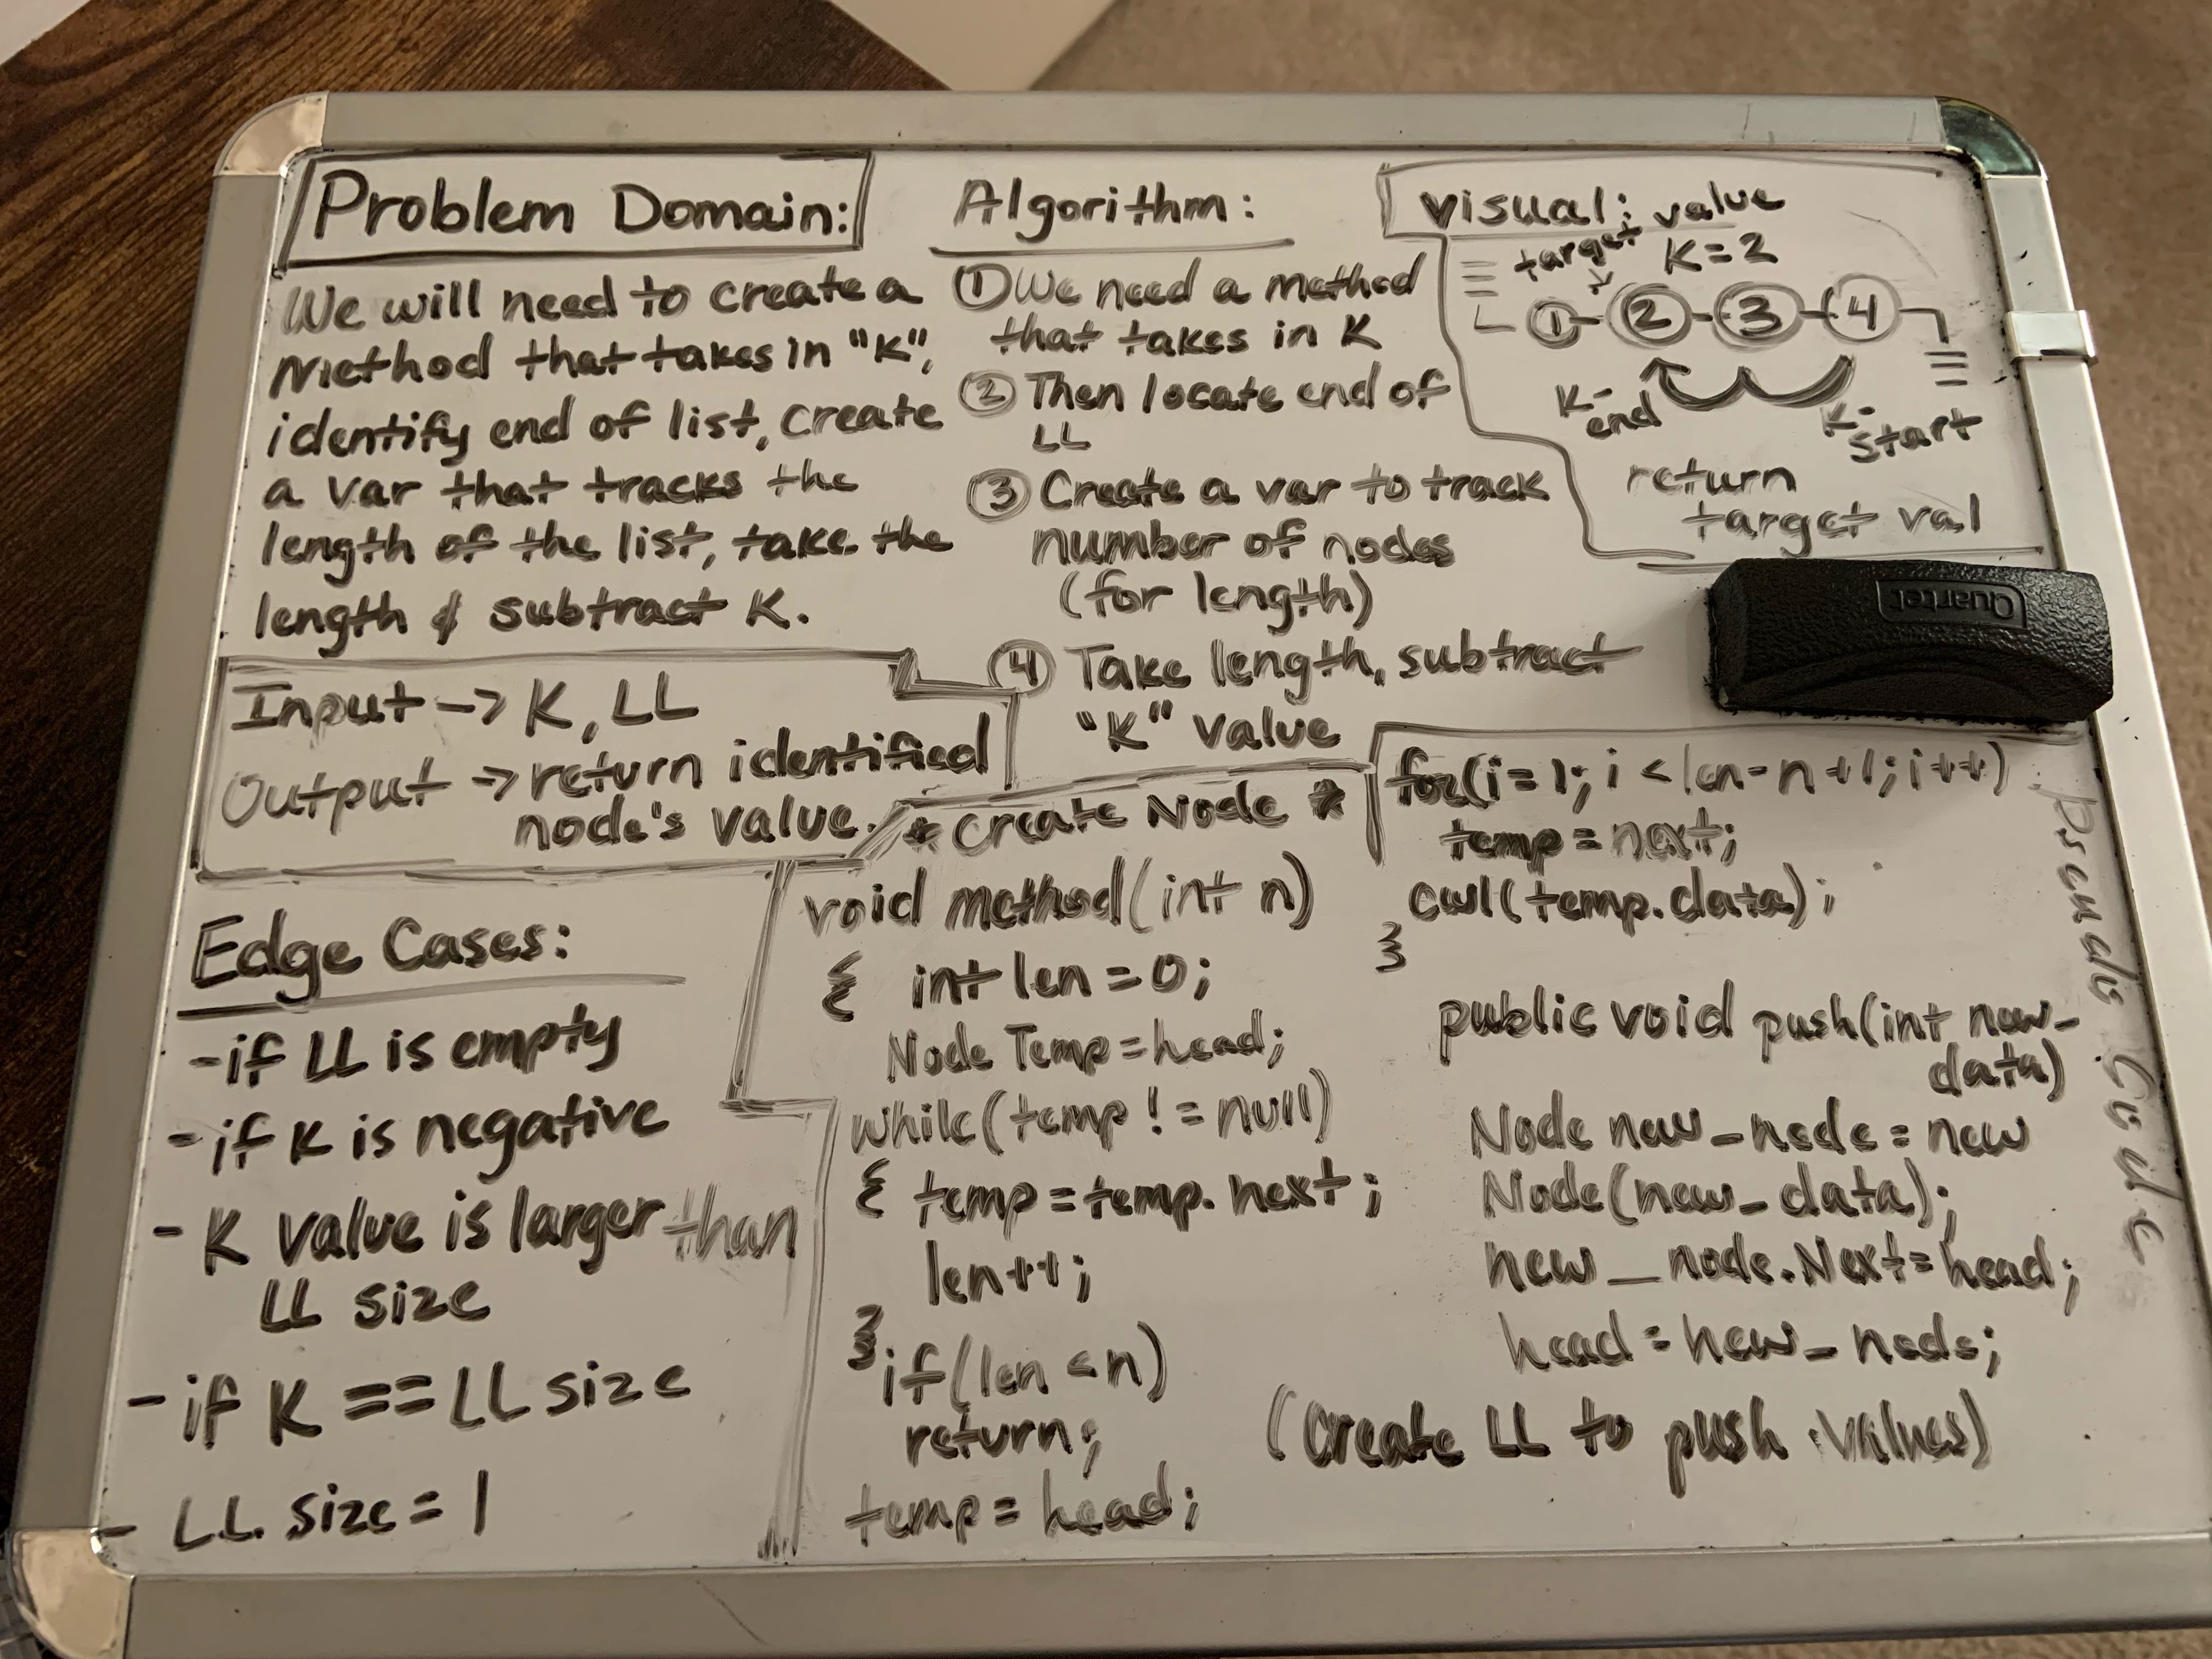 Problem Domain:
We will need to create a
method that takes in "K",
identify end of list, create
a var that tracks the
length of the list, take the
length & subtract K.
Input -> K, LL
Output => return identified
node's value.
Edge Cases:
- if LL is empty
- if K is negative
- K value is larger than
LL size
- if K == LL size
- LL size = 1
Algorithm:
① We need a method
that takes in K
② Then locate end of
LL
③ Create a var to track
number of nodes
(for length)
④ Take length, subtract
"K" value
Visual: value
target K=2
①-②-③-④
K-
end
K-
start
return
target val
* Create Node *
void method(int n)
{ int len = 0;
Node Temp = head;
while(temp != null)
{ temp = temp.next;
len++;
}
if(len < n)
return;
temp = head;
for(i=1; i < len-n+1; i++)
temp = next;
}
public void push(int new-
data)
Node new_node = new
Node(new_data);
new_node.Next = head;
head = new_node;
(create LL to push values)
Pseudo
Code
Quartet